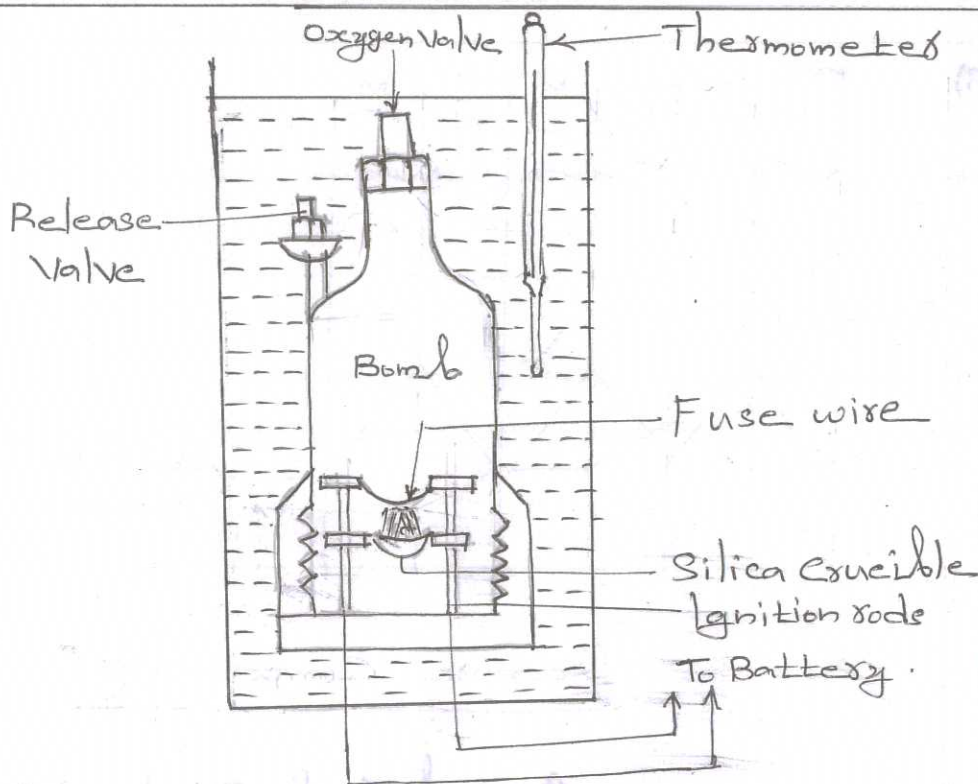 Oxygen Valve
Thermometer
Release
Valve
Bomb
Fuse wire
Silica Crucible
Ignition rods
To Battery.